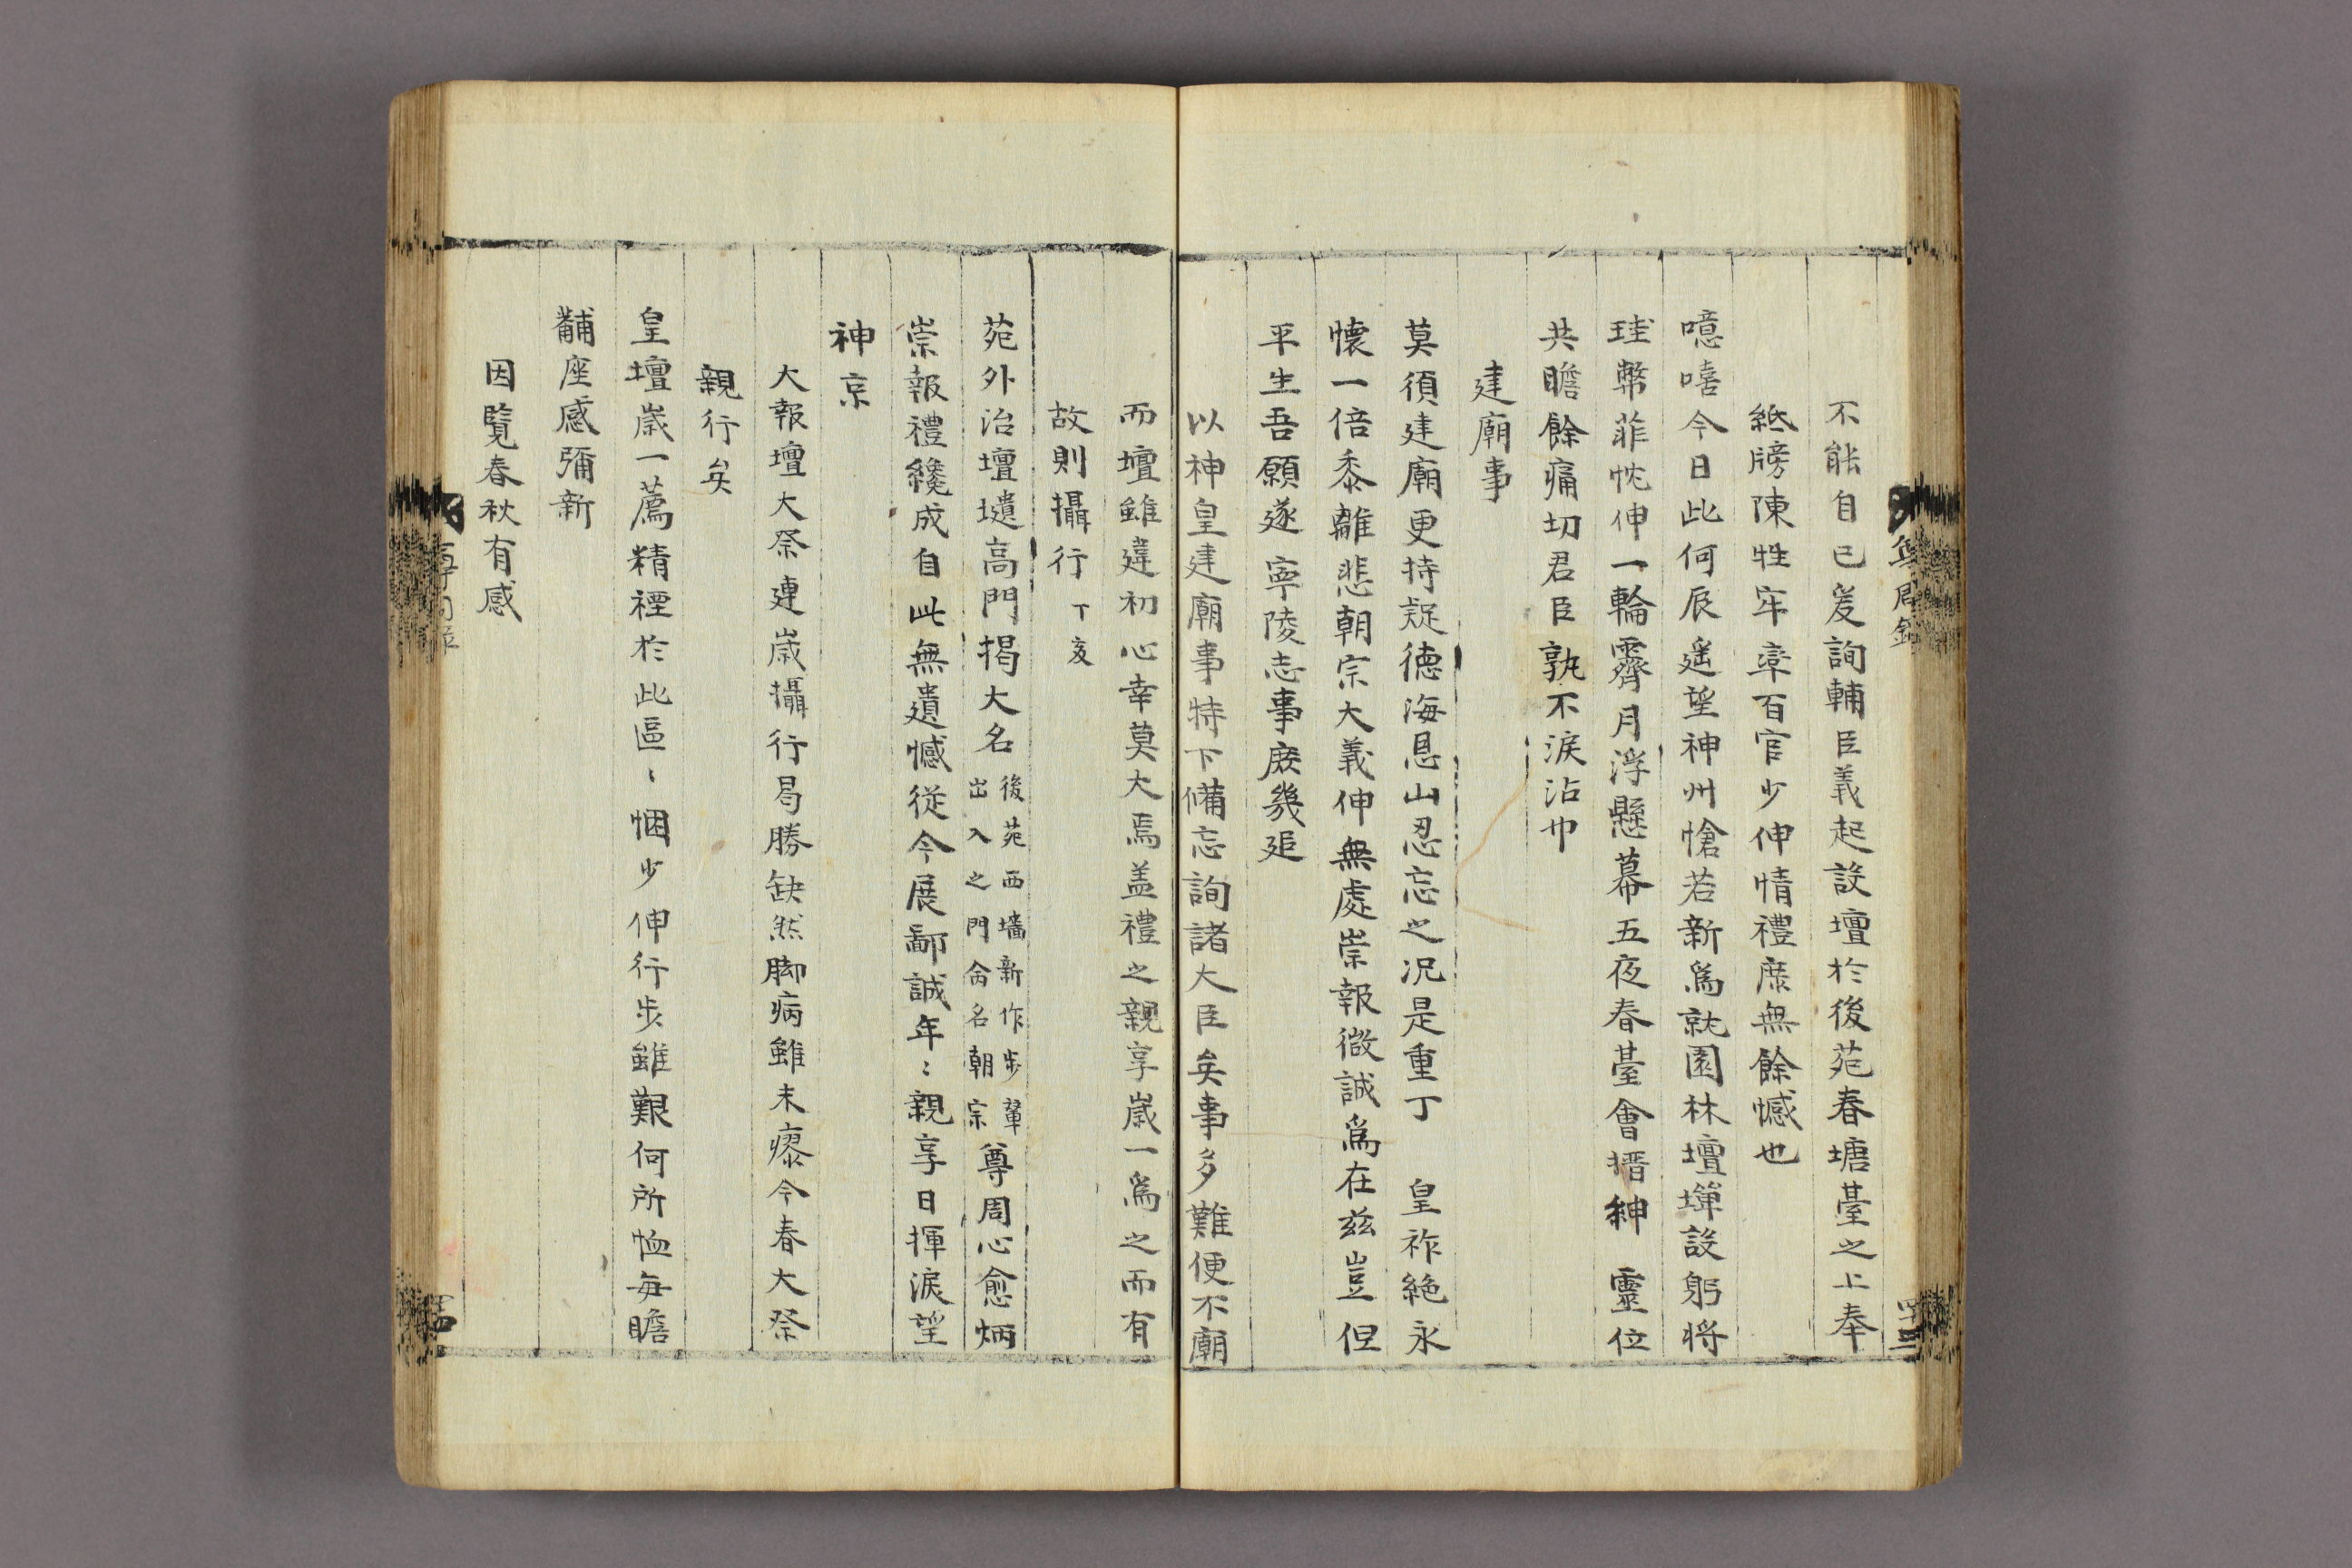 不能自已爰詢輔臣義起設壇於後苑春塘臺之上奉
紙牓陳牲牢率百官少伸情禮庶無餘憾也
噫嘻今日此何辰遥望神州愴若新爲就園林壇墠設躬将
珪幣菲忱伸一輪霽月浮懸幕五夜春臺會搢紳　靈位
共瞻餘痛切君臣孰不淚沾巾
建廟事
莫須建廟更持疑德海恩山忍忘之况是重丁　皇祚絶永
懷一倍黍離悲朝宗大義伸無處崇報微誠爲在兹豈但
平生吾願遂寧陵志事庶幾追
以神皇建廟事特下備忘詢諸大臣矣事多難便不廟
而壇雖違初心幸莫大焉盖禮之親享歲一爲之而有
故則攝行丁亥
苑外治壇壝高門揭大名後苑西墻新作步輦出入之門命名朝宗尊周心愈炳
崇報禮纔成自此無遺憾從今展鄙誠年〻親享日揮淚望
神京
大報壇大祭連歲攝行曷勝缺然脚病雖未瘳今春大祭
親行矣
皇壇歲一薦精禋於此區〻悃少伸行步雖艱何所恤每瞻
黼座感彌新
因覽春秋有感
四十三